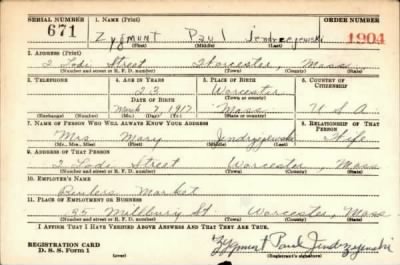 SERIAL NUMBER 1. NAME (Print) ORDER NUMBER
671 Zygmunt Paul Jendrzejewski 1904
(First) (Middle) (Last)
2. ADDRESS (Print)
2 Lodi Street Worcester, Mass.
(Number and street or R. F. D. number) (Town) (County) (State)
3. TELEPHONE 4. AGE IN YEARS 5. PLACE OF BIRTH 6. COUNTRY OF CITIZENSHIP
23 Worcester
(Town or county)
DATE OF BIRTH
March 7 1917 Mass. U S A
(Exchange) (Number) (Mo.) (Day) (Yr.) (State or country)
7. NAME OF PERSON WHO WILL ALWAYS KNOW YOUR ADDRESS 8. RELATIONSHIP OF THAT PERSON
Mrs. Mary Jendrzejewski Wife
(Mr., Mrs., Miss) (First) (Middle) (Last)
9. ADDRESS OF THAT PERSON
2 Lodi Street Worcester, Mass
(Number and street or R. F. D. number) (Town) (County) (State)
10. EMPLOYER'S NAME
Market
11. PLACE OF EMPLOYMENT OR BUSINESS
35 Millbury St Worcester, Mass
(Number and street or R. F. D. number) (Town) (County) (State)
I AFFIRM THAT I HAVE VERIFIED ABOVE ANSWERS AND THAT THEY ARE TRUE.
REGISTRATION CARD
D. S. S. Form 1 (over) Zygmunt Paul Jendrzejewski
(Registrant's signature)